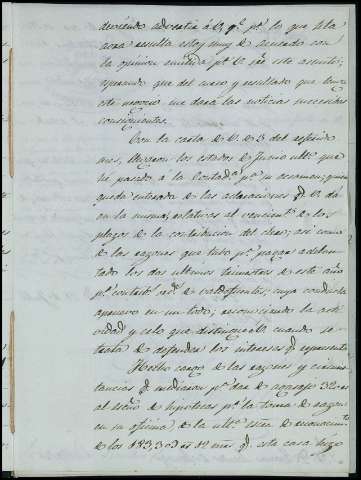 deviendo advertir á V. qᵉ pʳ lo que á la
casa resulta estoy muy de acuerdo con
la opinion emitida pʳ V. en este asunto;
esperando que del curso y resultado que
este negocio me dará las noticias necesarias
consiguientes.
Con la carta de V. de 3 del espirado
mes, llegaron los estados de Junio ultº que
he pasado á la Contadª pª su ecsamen; que
quedo enterado de las aclaraciones qᵉ V. dá
en la misma, relativas al vencimtº de los
plazos de la contribucion del clero; asi como
de las razones que tubo pª pagar adelan-
tado los dos ultimos trimestres de este año
pʳ contribⁿ de Valdefuentes; cuya conducta
apruevo en un todo, reconociendo la acti-
vidad y celo que distingue á V. cuando se
trata de defender los intereses qᵉ representa
Hecho cargo de las razones y circuns-
tancias qᵉ mediaron pª dar de agasajo 320 rs
al Escnº de hipotecas pʳ la toma de razon
en su oficina de la ultª escra de reconocimtº
de los 183,303 rs 12 mrs qᵉ esta casa hizo